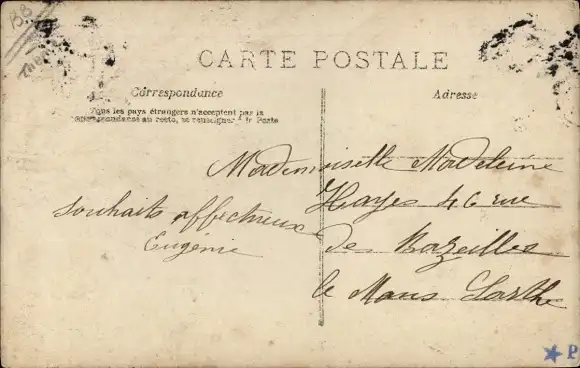 BB
CARTE POSTALE
Correspondance
Adresse
Tous les pays étrangers n'acceptent pas la
correspondance au recto, se renseigner à la Poste
Mademoiselle Madeleine
Hayes 46 rue
de Bazeilles
le Mans Sarthe
souhaits affectueux
Eugénie
P